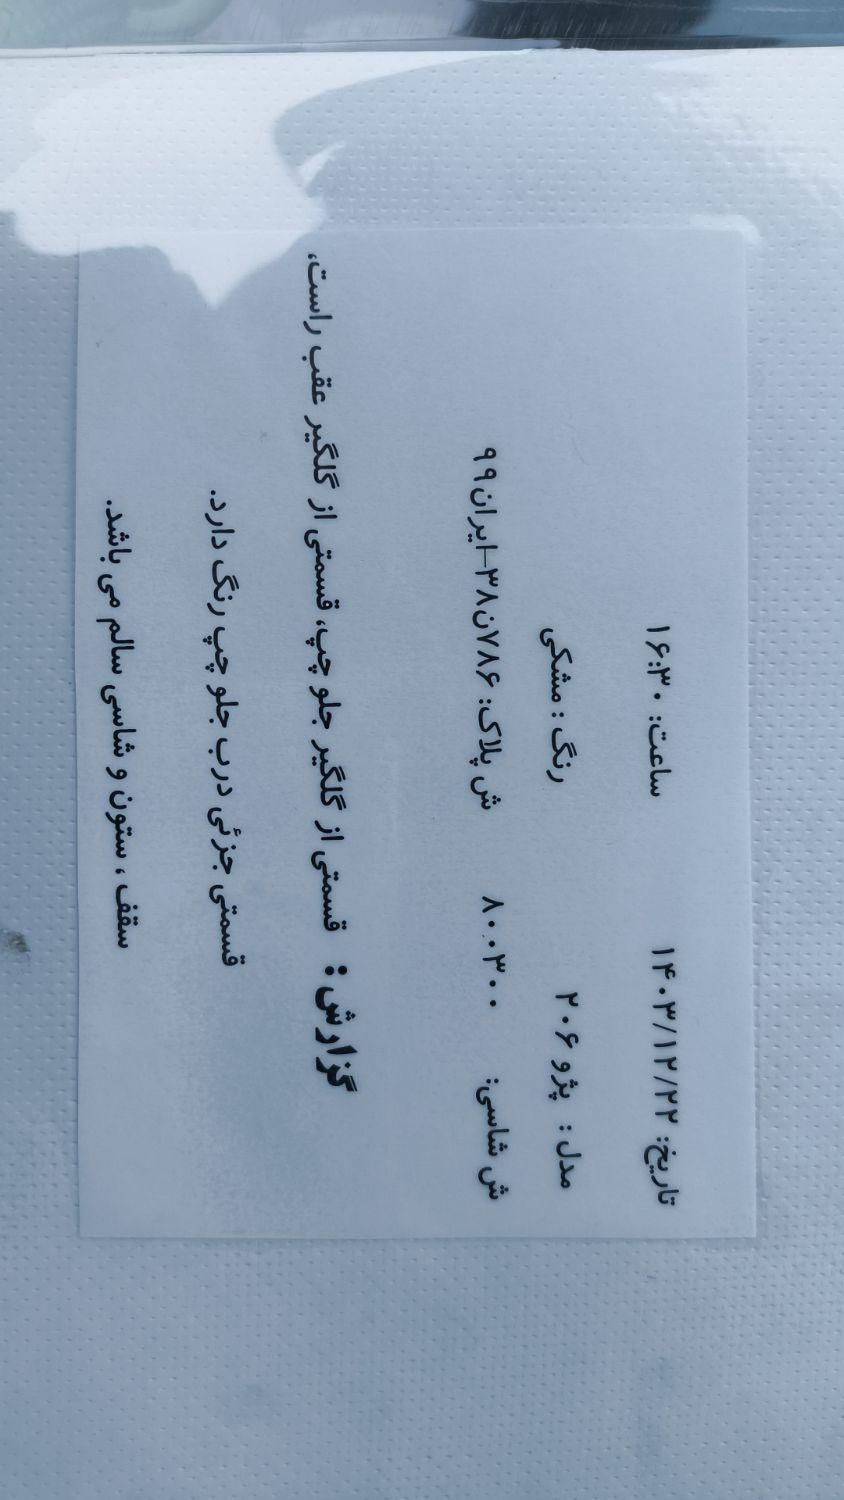 تاریخ: ۱۴۰۳/۱۲/۲۲ ساعت: ۱۶:۳۰
مدل : پژو ۲۰۶ رنگ : مشکی
ش شاسی: ۸۰۰۳۰۰ ش پلاک: ۷۸۶ن۳۸-ایران۹۹
گزارش : قسمتی از گلگیر جلو چپ، قسمتی از گلگیر عقب راست،
قسمتی جزئی درب جلو چپ رنگ دارد.
سقف ، ستون و شاسی سالم می باشد.